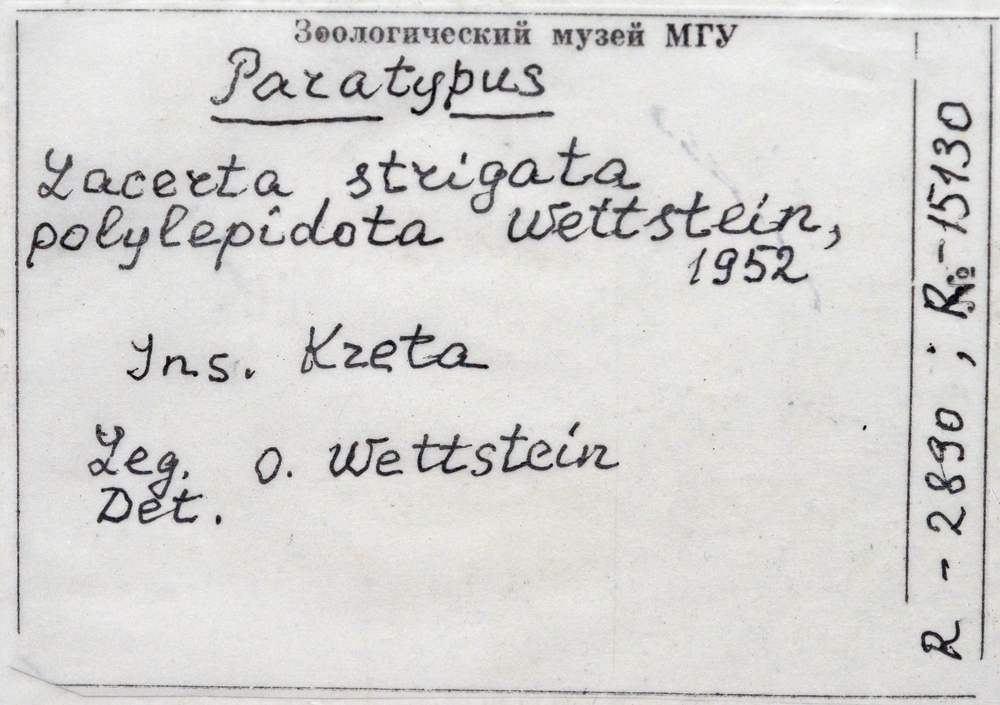 Зоологический музей МГУ
Paratypus
Lacerta strigata
polylepidota Wettstein,
1952
Ins. Kreta
Leg. O. Wettstein
Det.
R - 2890 ; R № - 15130